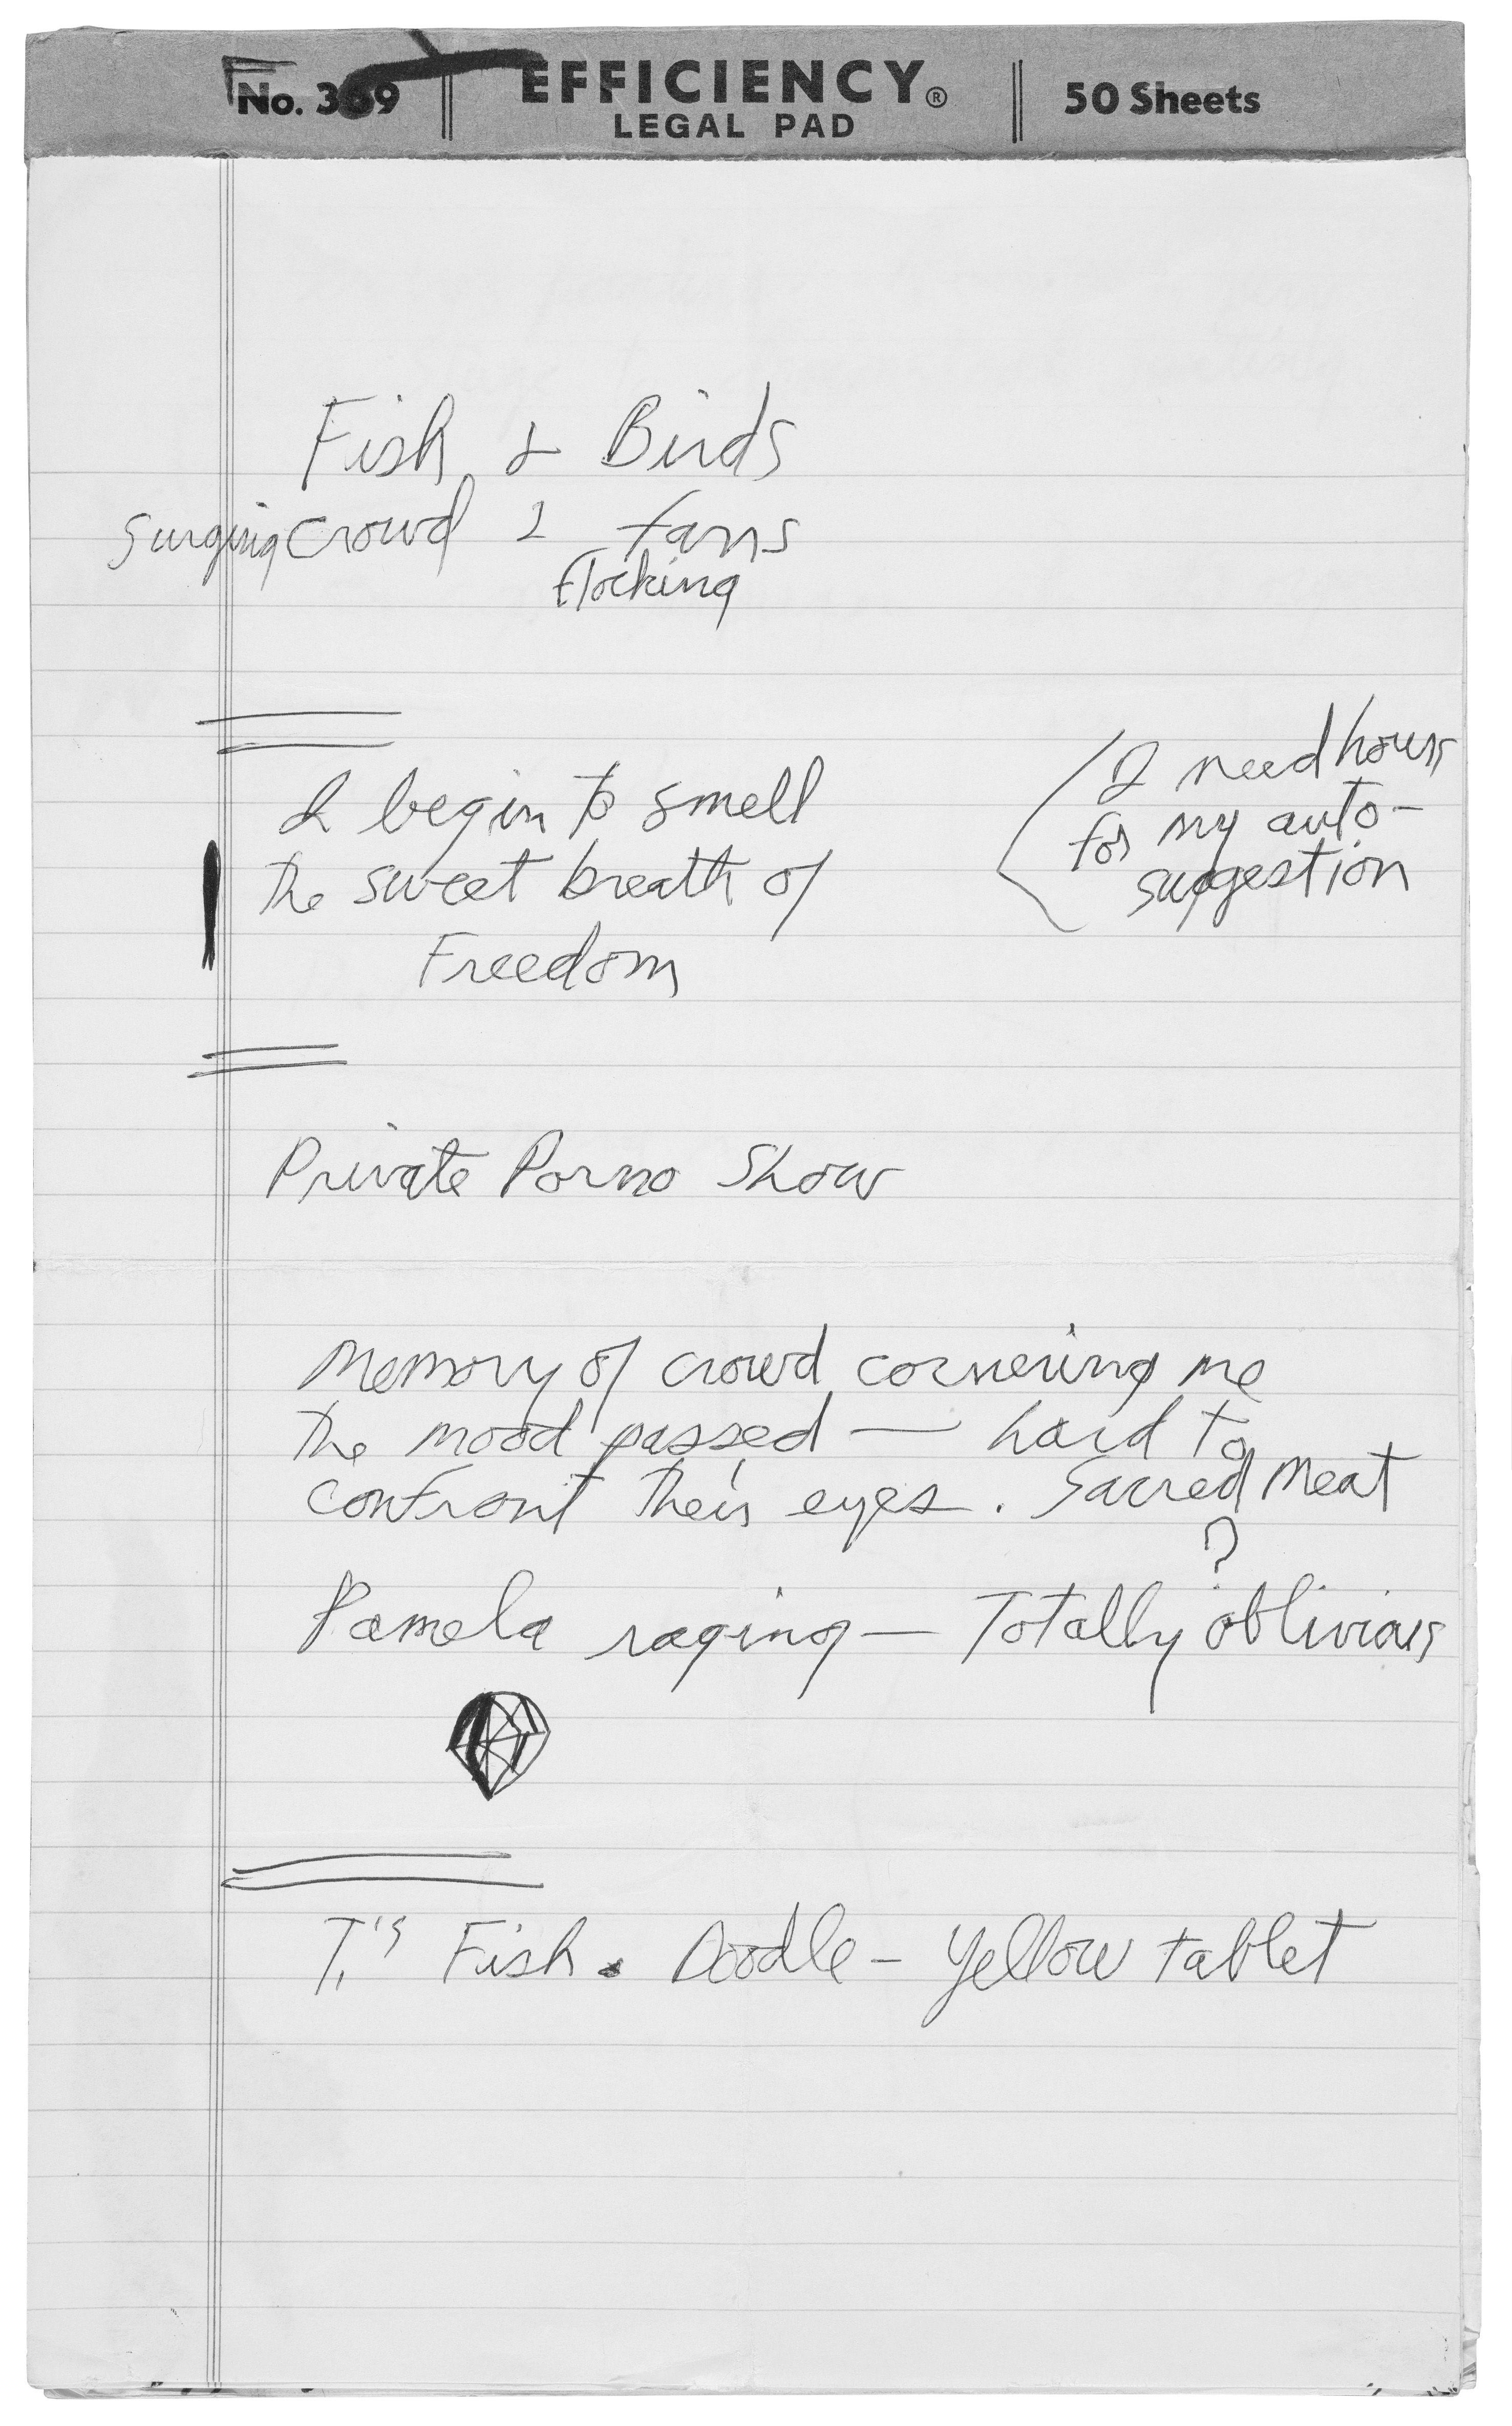 No. 369 EFFICIENCY® 50 Sheets
LEGAL PAD
Fish & Birds
Surging Crowd & fans
flocking
I begin to smell
the sweet breath of
Freedom
I need hours
for my auto-
suggestion
Private Porno Show
Memory of crowd cornering me
the mood passed — hard to
confront their eyes. Sacred Meat
?
Pamela raging — Totally oblivious
T.'s Fish. Doodle – Yellow tablet